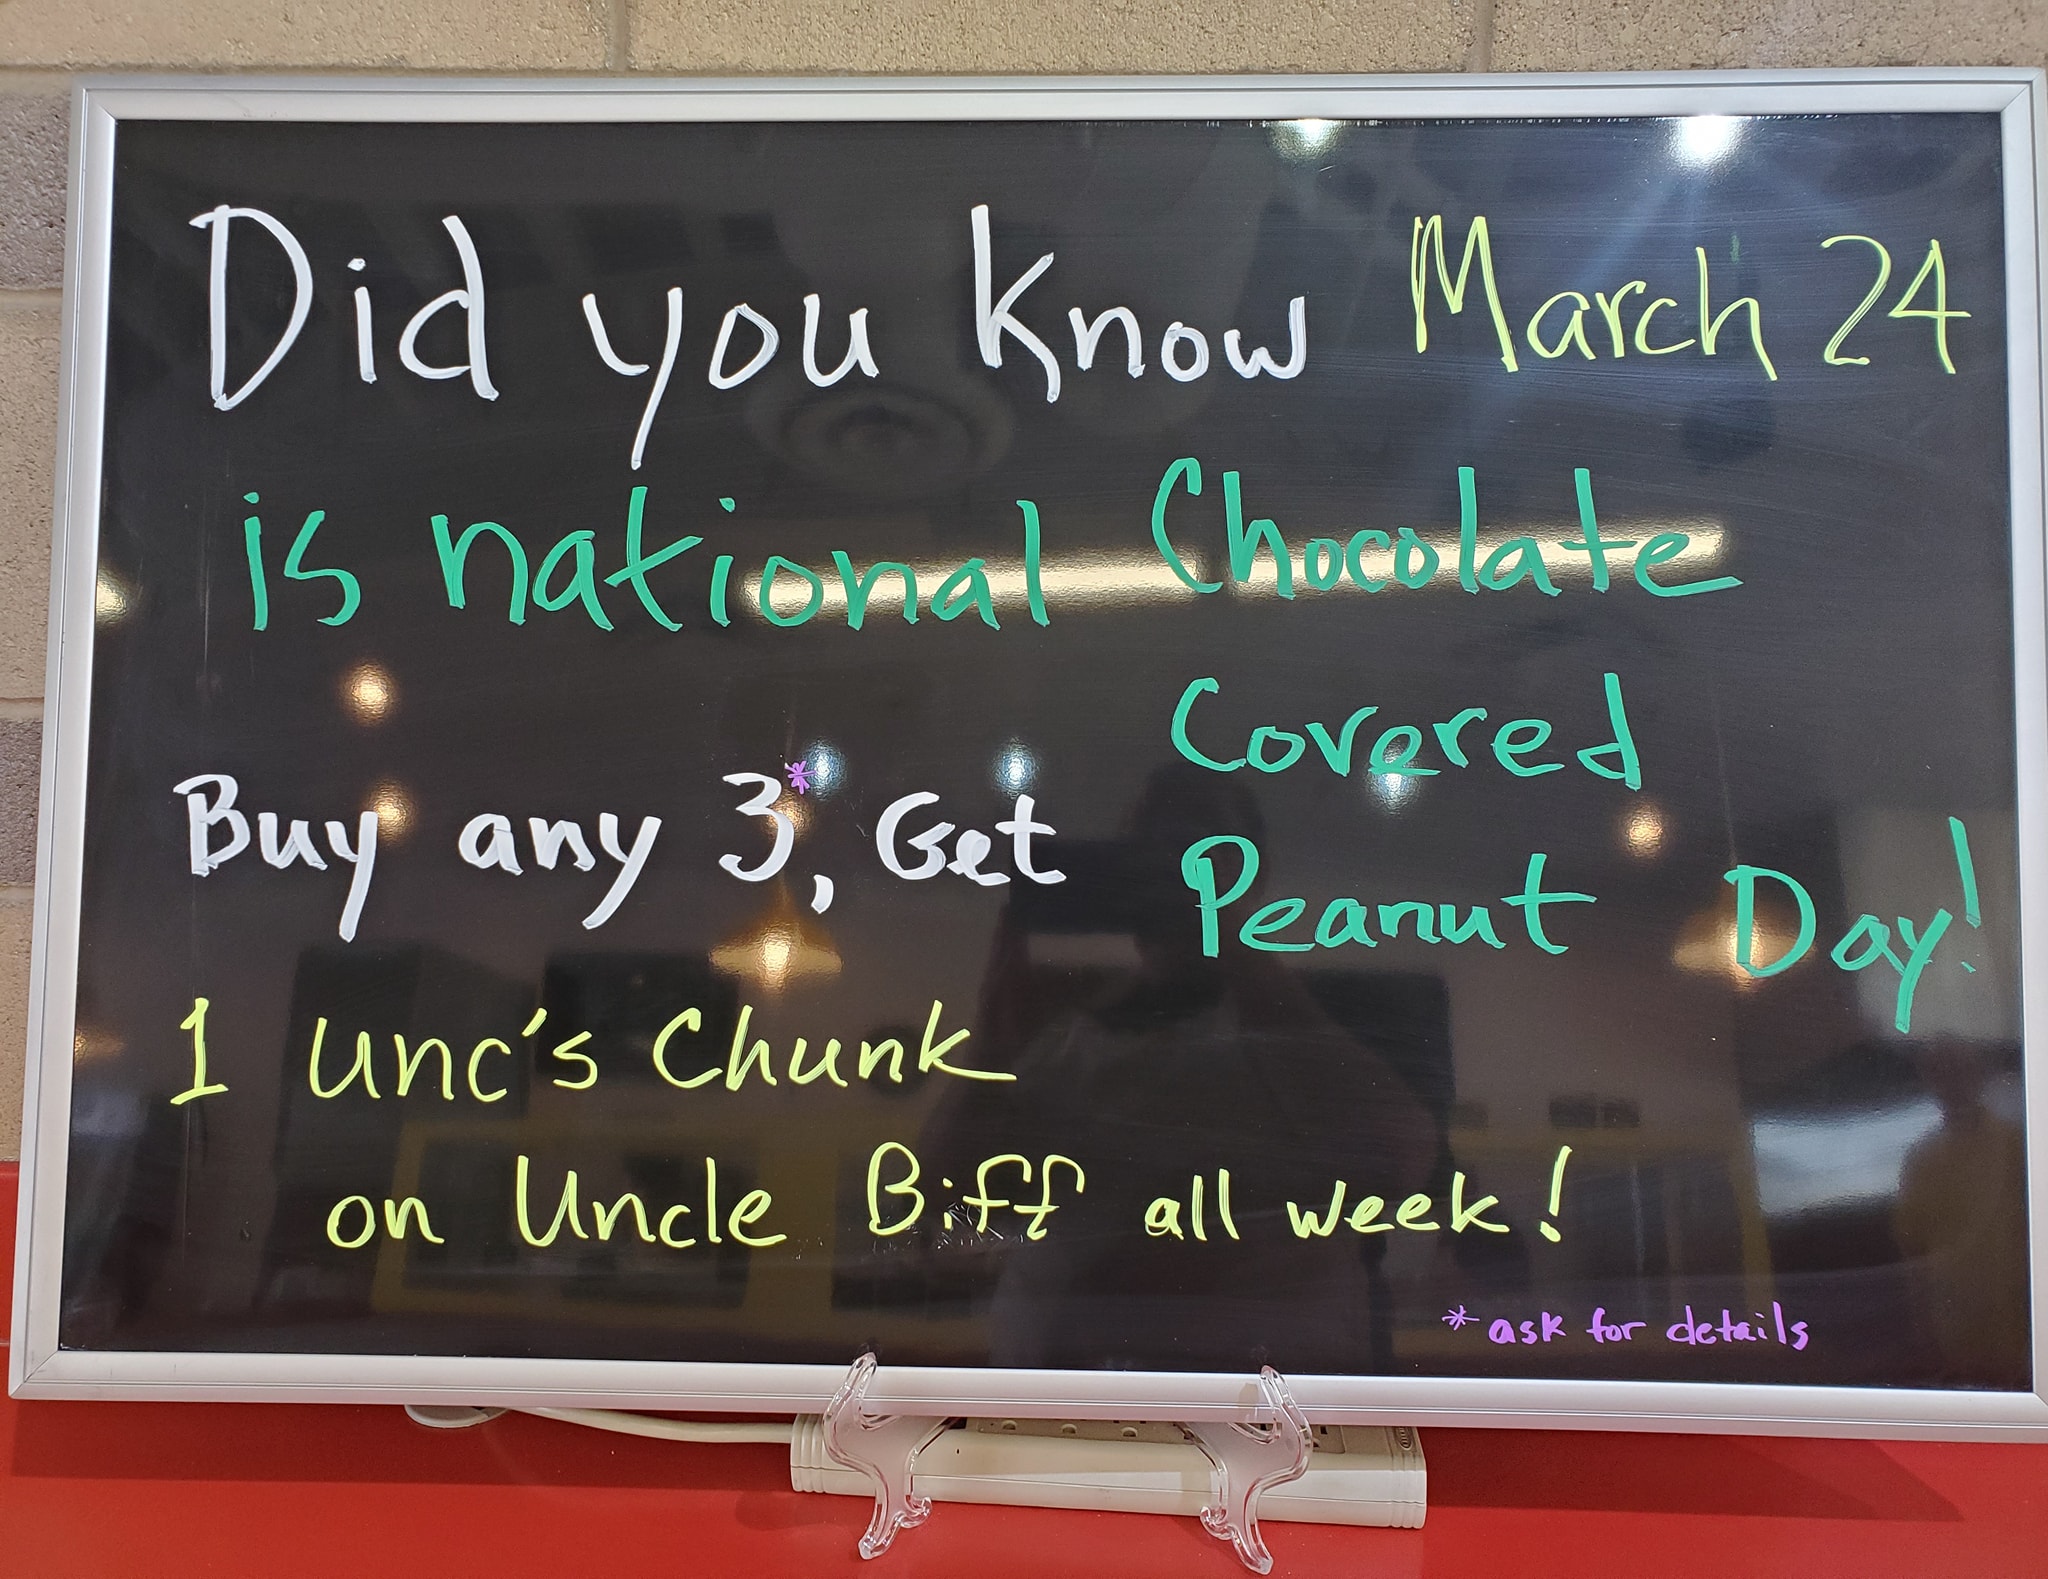 Did you know March 24
is national Chocolate
Covered
Peanut Day!
Buy any 3*, Get
1 Unc's Chunk
on Uncle Biff all week!
*ask for details